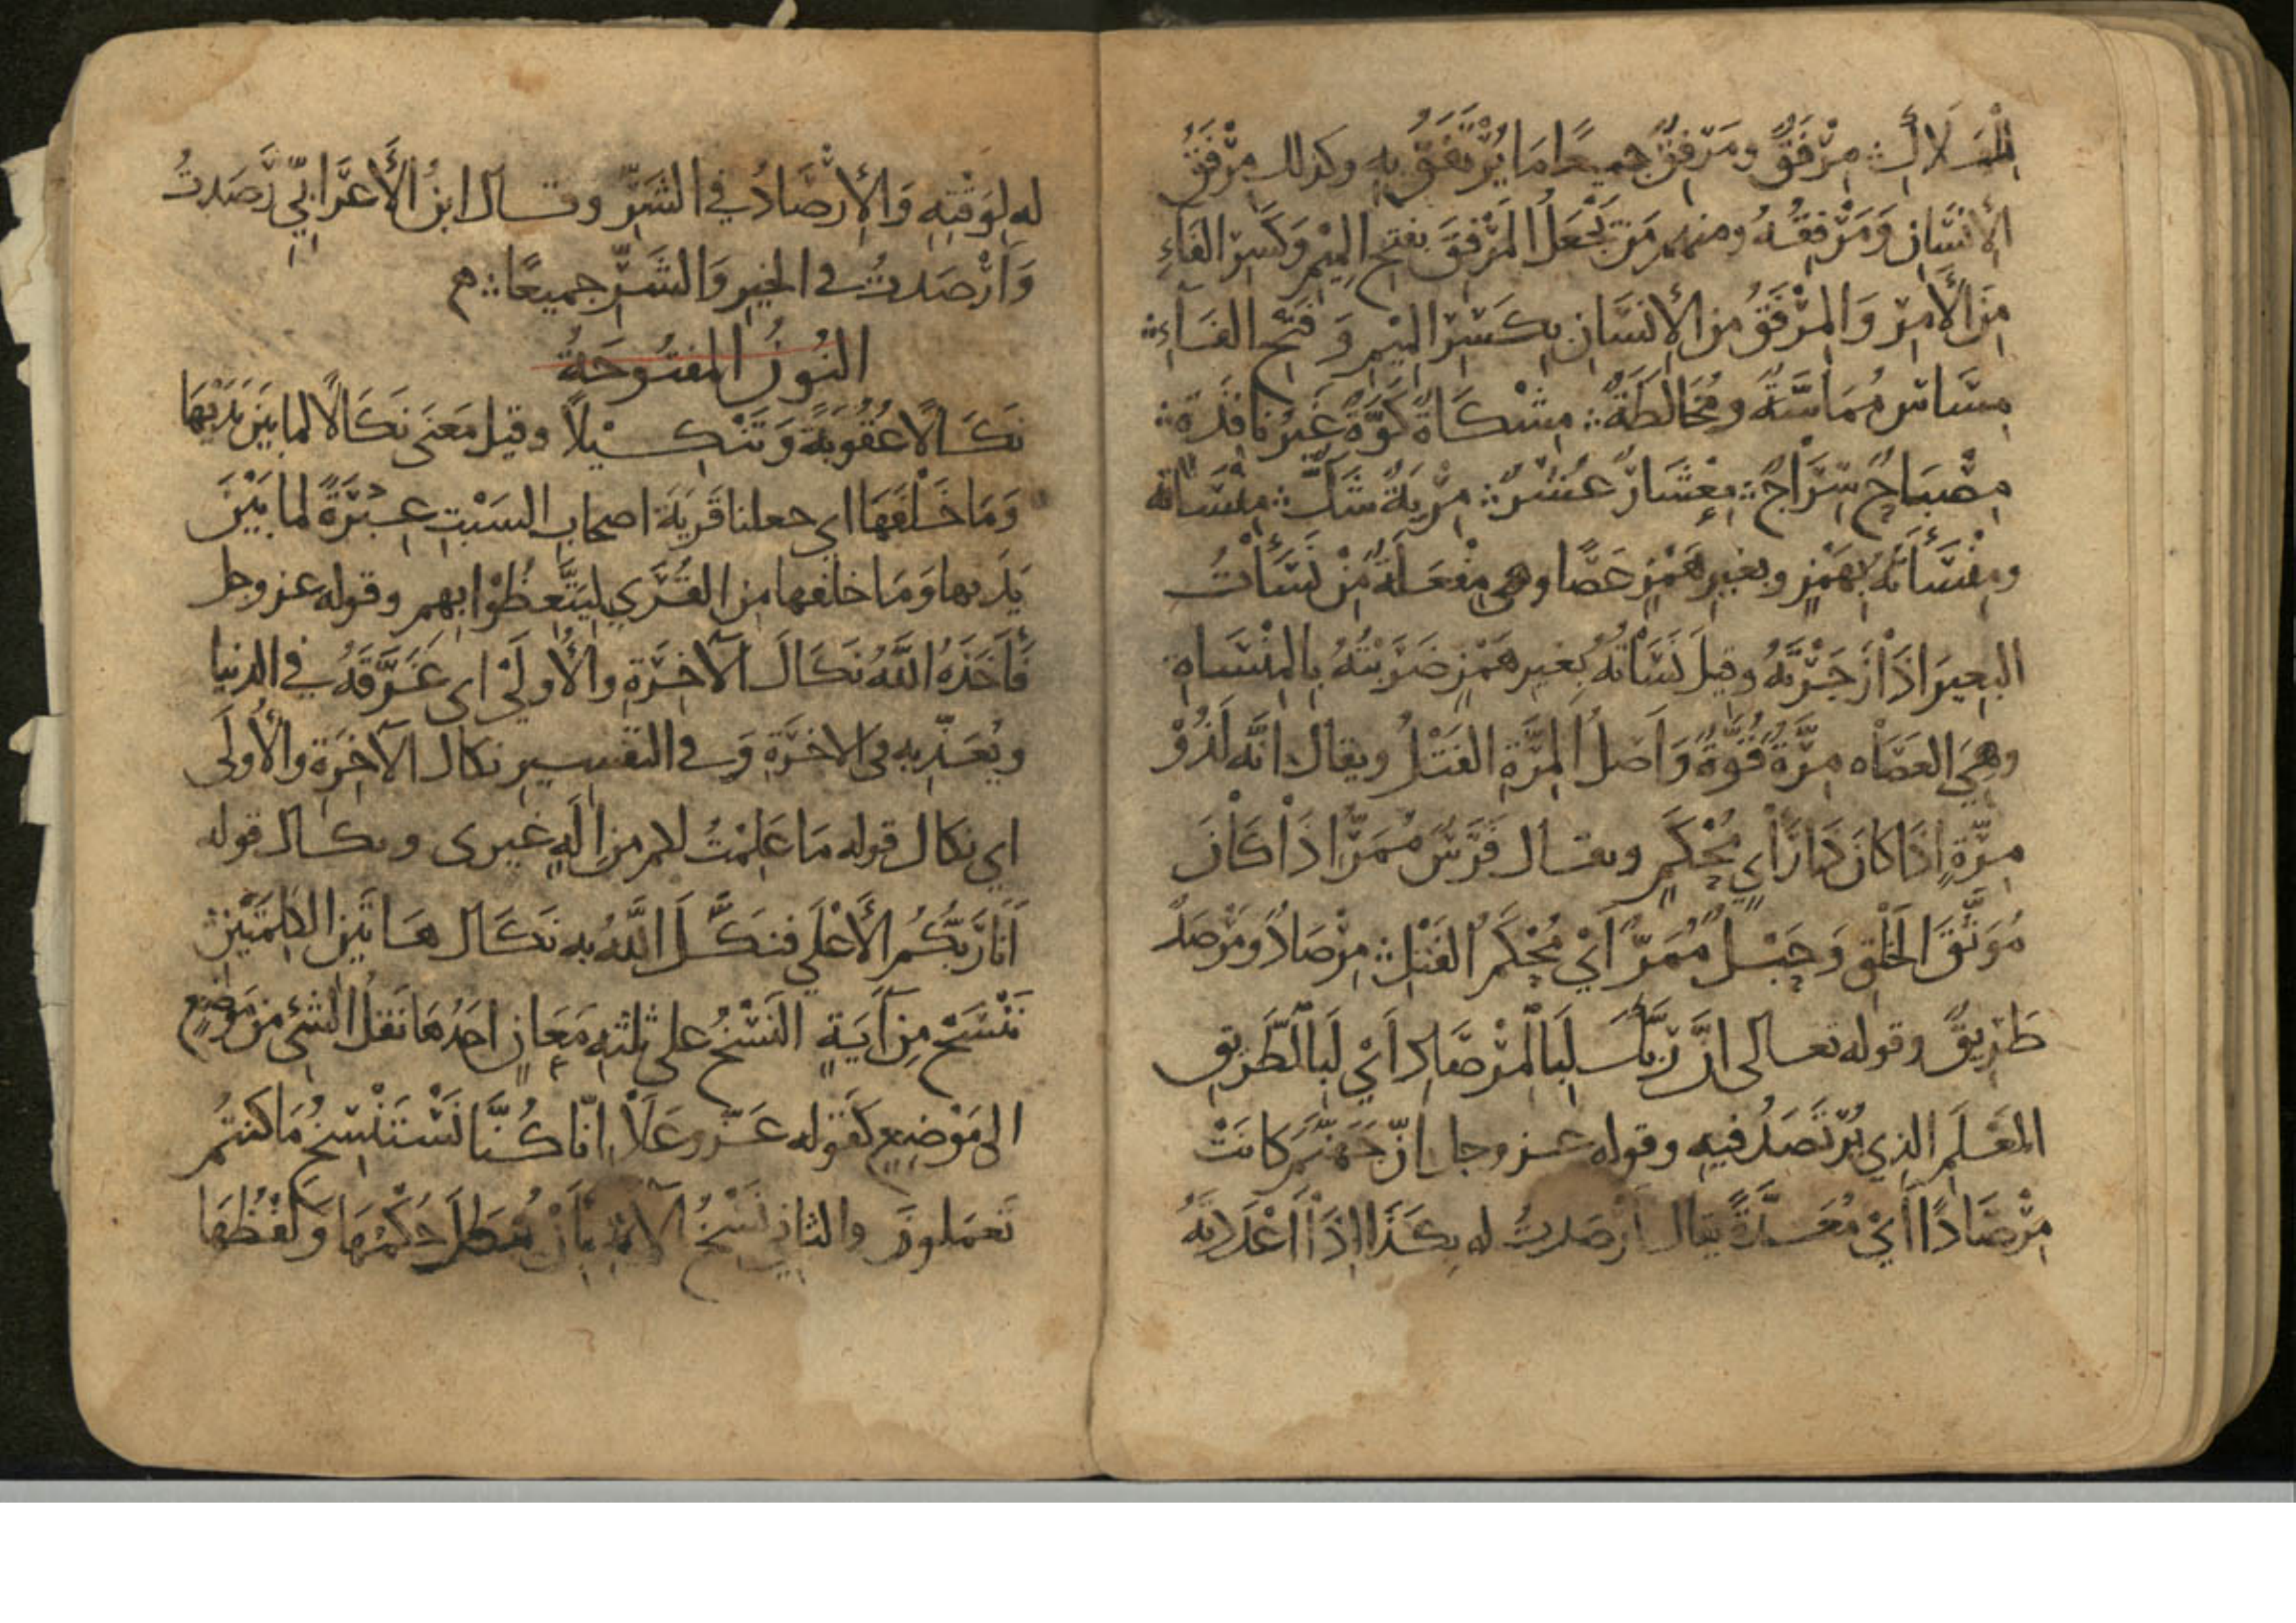 مِرْفَقٌ ومَرْفِقٌ جميعًا مَا يُرْتَفَقُ بِهِ وكذلك مِرْفَقُ
الْإِنْسَانِ وَمَرْفِقُهُ ومنهم مَنْ يَجْعَلُ المَرْفِقَ بفتح المِيْمِ وَكَسْرِ الفَاءِ
مِنَ الْأَمْرِ وَالمِرْفَقُ مِنَ الإِنْسَانِ بِكَسْرِ المِيْمِ وَفَتْحِ الفَاءِ
مِسَاس مُمَاسَّةٌ ومُخَالَطَةٌ مِشْكَاةٌ كُوَّةٌ غَيْرُ نَافِذَةٍ
مِصْبَاحٌ سِرَاجٌ مِعْشَارٌ عُشْرٌ مِرْيَةٌ شَكٌّ مِنْسَاتَهُ
ومِنْسَأَتَهُ بِهَمْزٍ وبغيرِ هَمْزٍ عَصًا وهي مِفْعَلَةٌ مِنْ نَسَأْتُ
البعيرَ اذَا زَجَرْتَهُ وقيلَ نَسَاْتُهُ بغيرِ هَمْزٍ ضَرَبْتُهُ بِالمِنْسَاةِ
وهِيَ العَصَاه مِرَّةٌ قُوَّةٌ وَاَصلُ المِرَّةِ الفَتْلُ ويقال انَّه لَذُوْ
مِرَّةٍ اذَا كانَ ذَا رَاْيٍ مُحْكَمٍ ويقال فَرَسٌ مُمَرٌّ اذَا كَانَ
مُوَثَّقَ الخَلْقِ وَحَبْلٌ مُمَرٌّ اَيْ مُحْكَمُ الفَتْلِ مِرْصَادٌ ومَرْصَدٌ
طَرِيقٌ وقوله تعالى انَّ رَبَّكَ لَبِالْمِرْصَادِ اَيْ لَبِالطَّرِيقِ
المَعْلَمِ الذي يُرْتَصَدُ فيهِ وقوله عز وجل إنّ جَهَنَّمَ كانَتْ
مِرْصَادًا أَيْ مُعَدَّةً يقال اَرْصَدتُ له بِكَذَا اِذَا اَعْدَدْتَهُ
له لِوَقْتِهِ وَالإِرْصَادُ في الشَرِّ وقال ابنُ الأَعْرَابِيّ رَصَدتُ
وَاَرْصَدتُ في الخيرِ وَالشَرِّ جميعًا
النُونُ المفتُوحَةُ
نَكَالًا عُقُوبَةً وَتَنْكِيْلًا وقيل مَعْنَى نَكَالًا لما بَيْنَ يَدَيْهَا
وَمَا خَلْفَهَا اي جعلنا قَرْيَةَ اصحابِ السَبْتِ عِبْرَةً لما بَيْنَ
يَدَيها وَمَا خلفها مِنَ القُرَي لِيَتَّعِظُوْا بِهم وقوله عز وجل
فَأَخَذَهُ اللّٰهُ نَكَالَ الآخِرَةِ والأُولَيْ اي غَرَّقَهُ في الدنيا
ويُعَذِّبه في الاخرَةِ وَفي التفسيرِ نكال الآخِرَةِ والأُولَى
اي نكال قوله مَا عَلِمْتُ لكم مِن إِلَهٍ غيري ونكال قوله
اَنَا رَبُّكُمُ الأَعْلَي فنَكَّلَ اللّٰهُ به نَكَالَ هَاتَيْنِ الكَلِمَتَيْنِ
نَنْسَخْ مِن آيَةٍ النَسْخُ على ثلثهِ مَعَانٍ احَدُهَا نَقْلُ الشيْءِ مِن مَوْضِعٍ
الى مَوْضِعٍ كَقَوْلِه عَزَّ وعَلَا إِنّا كُنَّا نَسْتَنْسِخُ مَا كنتُم
تَعمَلونَ والثاني نَسْخُ الآيَةِ بِأَنْ يَبْطُلَ حُكْمُهَا وَلَفْظُهَا